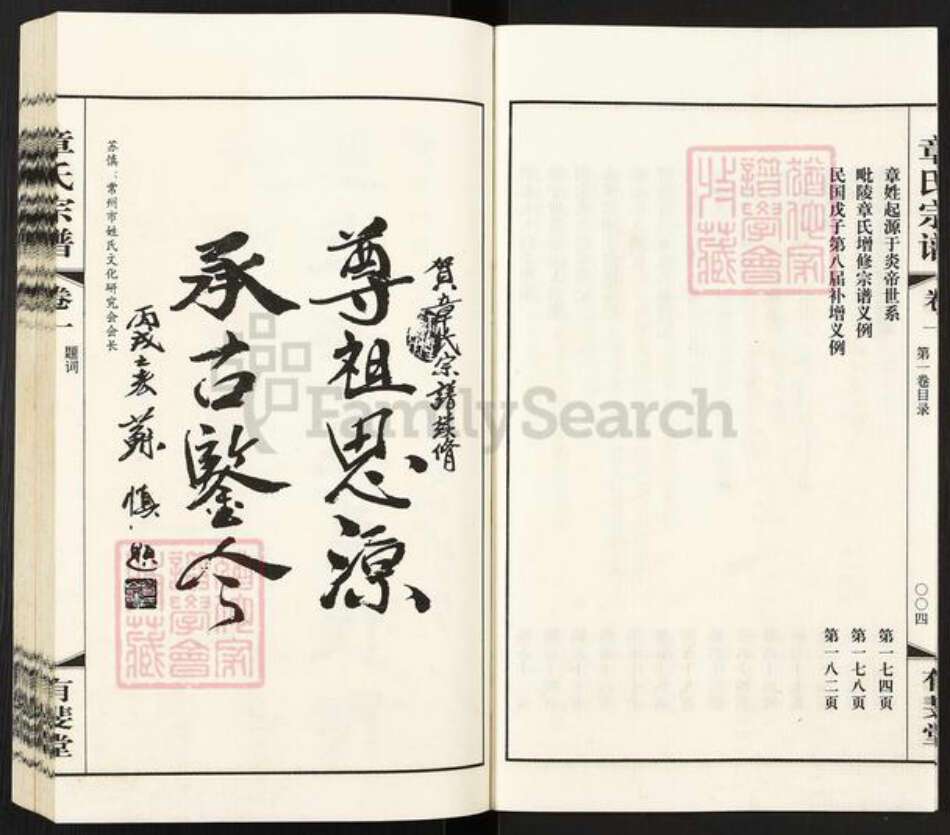 章氏宗谱
卷一
第一卷目录
〇〇四
有斐堂
章姓起源于炎帝世系
第一七四页
毗陵章氏增修宗谱义例
第一七八页
民国戊子第八届补增义例
第一八二页
譜學會
收藏
賀章氏宗譜续修
尊祖思源
承古鑒今
丙戌之春 蘇慎 题
苏慎：常州市姓氏文化研究会会长
譜學會
收藏
章氏宗谱
卷一
题词
有斐堂
FamilySearch